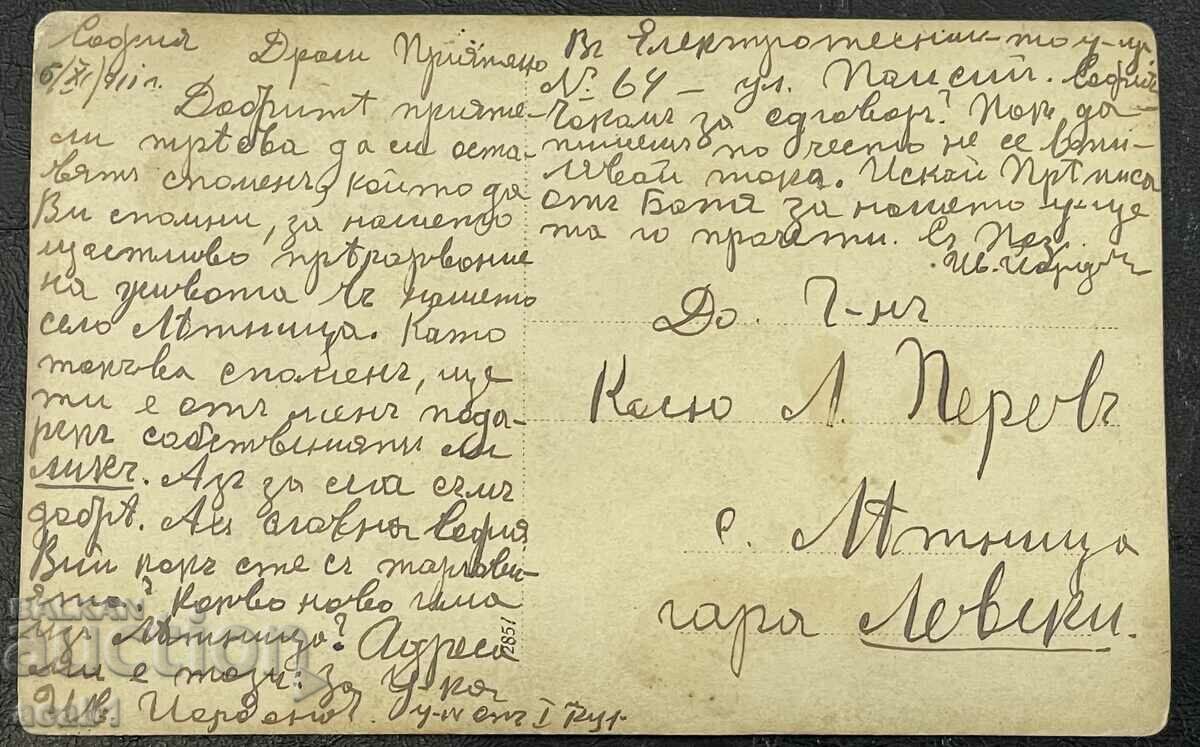 София
6/XI/911 г.
Драги Приятелю
Добритѣ прияте-
ли трѣбва да си оста-
вятъ споменъ, който да
Ви спомни, за нашето
щастливо прѣкарвание
на живота въ нашето
село Лѣтница. Като
такъва споменъ, ще
ти е отъ менъ пода-
рекъ собственияти ми
ликъ. Азъ за сега съмъ
добрѣ. Ли славна София
Вий какъ сте съ търгови-
ята? Какво ново има
изъ Лѣтница? Адреса
ми е този: за У-ка
Ив. Йорданов. у-къ отъ I курс
Въ Електротехник-то у-ще
№ 64 – ул. Паисий. София
Чакамъ за отговоръ? Пакъ да
пишешъ по често не се
тока. Искай Прѣписа
отъ Ботя за нашето у-ще
та го прочети. Съ Поз.
Ив. Йорда
До. Г-нъ
Касю Л. Перовъ
с. Лѣтница
гара Левски.
2857
BALKAN
auction